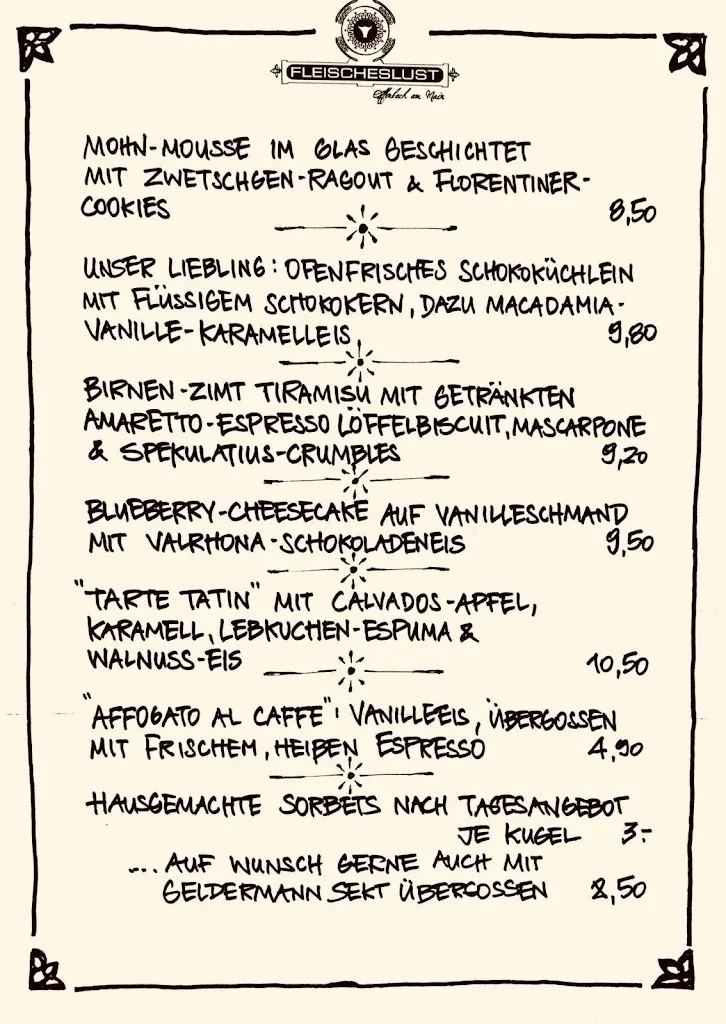 FLEISCHESLUST
Offenbach am Main
MOHN-MOUSSE IM GLAS GESCHICHTET
MIT ZWETSCHGEN-RAGOUT & FLORENTINER-
COOKIES 8,50
UNSER LIEBLING: OFENFRISCHES SCHOKOKÜCHLEIN
MIT FLÜSSIGEM SCHOKOKERN, DAZU MACADAMIA-
VANILLE-KARAMELLEIS 9,80
BIRNEN-ZIMT TIRAMISU MIT GETRÄNKTEN
AMARETTO-ESPRESSO LÖFFELBISCUIT, MASCARPONE
& SPEKULATIUS-CRUMBLES 9,20
BLUEBERRY-CHEESECAKE AUF VANILLESCHMAND
MIT VALRHONA-SCHOKOLADENEIS 9,50
"TARTE TATIN" MIT CALVADOS-APFEL,
KARAMELL, LEBKUCHEN-ESPUMA &
WALNUSS-EIS 10,50
"AFFOGATO AL CAFFE": VANILLEEIS, ÜBERGOSSEN
MIT FRISCHEM, HEIßEN ESPRESSO 4,90
HAUSGEMACHTE SORBETS NACH TAGESANGEBOT
JE KUGEL 3.-
.... AUF WUNSCH GERNE AUCH MIT
GELDERMANN SEKT ÜBERGOSSEN 2,50